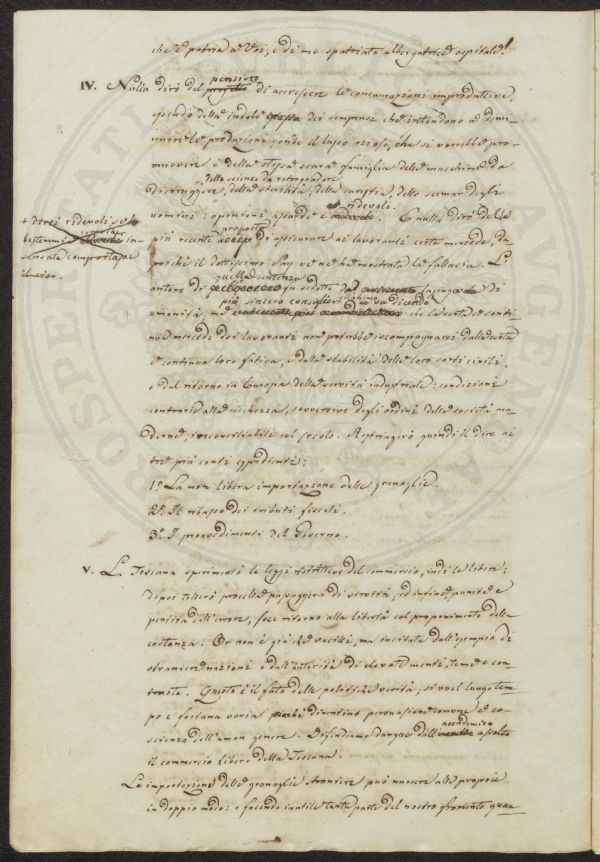 che è patria a Voi, e di me spatriato albergatrice ospitale!
IV. Nulla dirò del pensiero di accrescere le consumazioni improduttive,
ignorando della indole stessa dei compensi che intendono a dimi-
nuire le produzioni; onde il lupo ozioso, che si vorrebbe pro-
muovere è della stessa scura famiglia delle macchine da
distruggere, della scienza da retrogradare, della sterilità, della carestia, dello scemar degli
uomini: opinioni assurde e ridevoli. E nulla dirò della
+ direi ridevoli, se la
più recente di assicurare ai lavoranti certa mercede, da
bestemmia in
sensata comportasse
il riso.
poiché il dottissimo Say ve ne ha mostrata la fallacia. L'
autore di quella sentenza fu sedotto da lusinga di
umanità; ma più sincero consiglier che la certa e conti
nua mercede dei lavoranti non potrebbe scompagnarsi dalla certa
e continua loro fatica, e dalla stabilità delle loro sorti civili,
e dal ritorno in Europa della servitù industriale: condizioni
contrarie alla ricchezza, sovversive degli ordini della società mo
derna, irreconciliabili col secolo. Restringerò quindi il dire ai
tre più conti espedienti:
1.º La non libera importazione delle granaglie.
2.º Il ribasso dei tributi fiscali.
3.º I provvedimenti del Governo.
V. La Toscana sperimentò le leggi restrittive del commercio, indi le libere;
dipoi tollerò procella passaggera di servitù, ed infine, punita e
pentita dell'errore, fece ritorno alla libertà col proponimento della
costanza. Or non è già che vacilli, ma incitata dall'esempio di
straniere nazioni e dall'autorità di elevate menti, teme e con
trasta. Questo è il fato delle politiche verità; si vuol lungo tem
po e fortuna varia perché diventino persuasione comune e co-
scienza dell'uman genere. Difendiamo dunque dall'accademico assalto
il commercio libero della Toscana.
La importazione delle granaglie straniere può nuocere alle proprie
in doppio modo: o facendo inutile tanta parte del nostro frumento quan